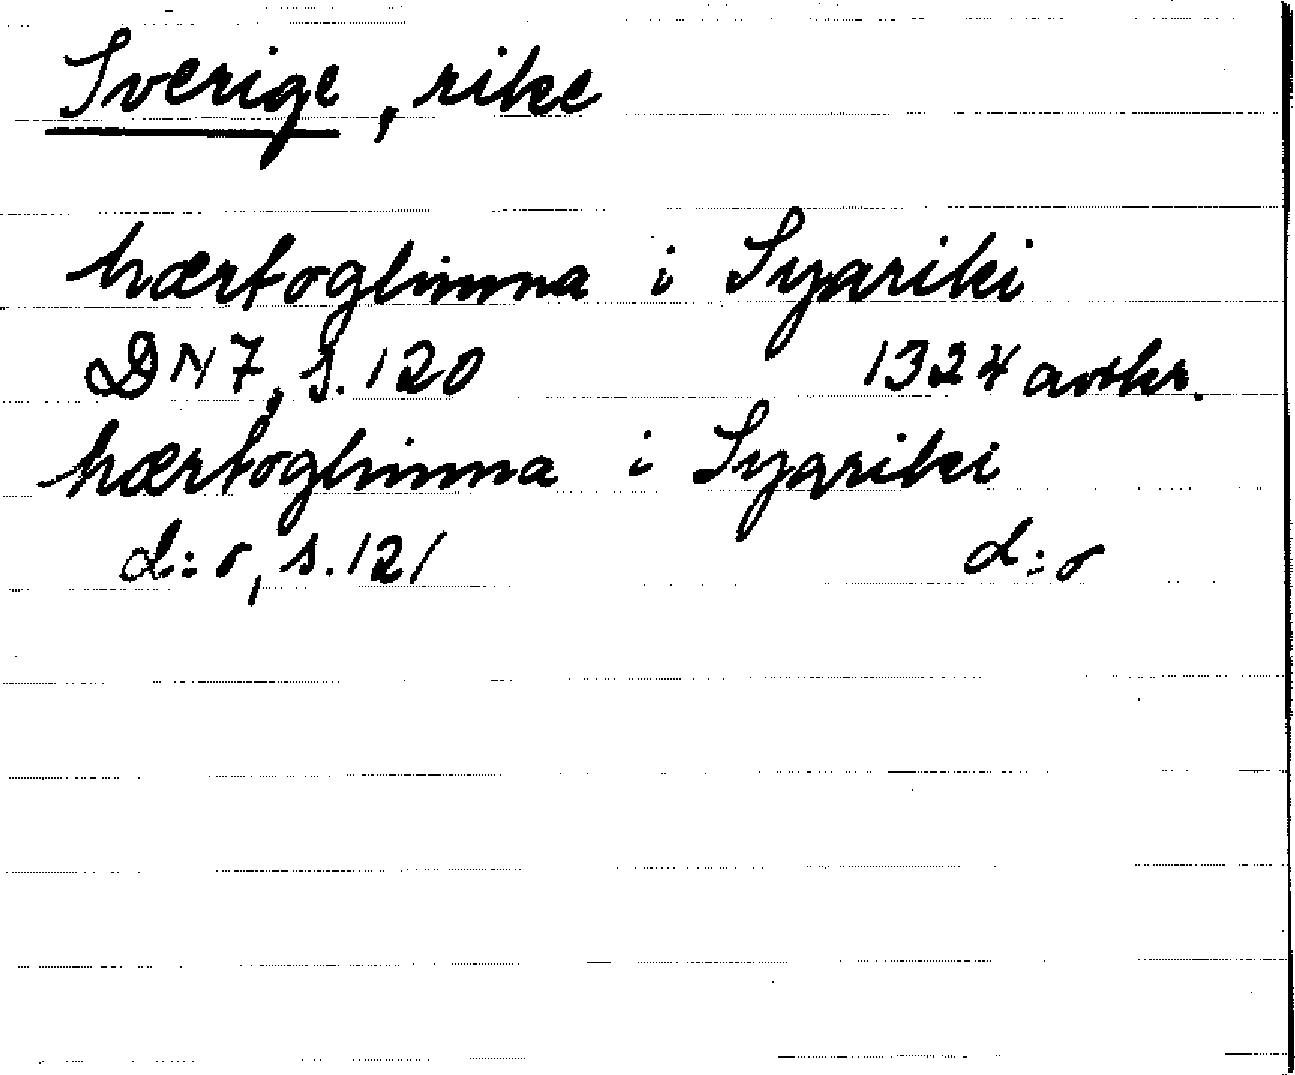 Sverige, rike
hærtoghinna i Syariki
DN7, s. 120 1324 avskr.
hærtoghinna i Syariki
d:o, s. 121 d:o